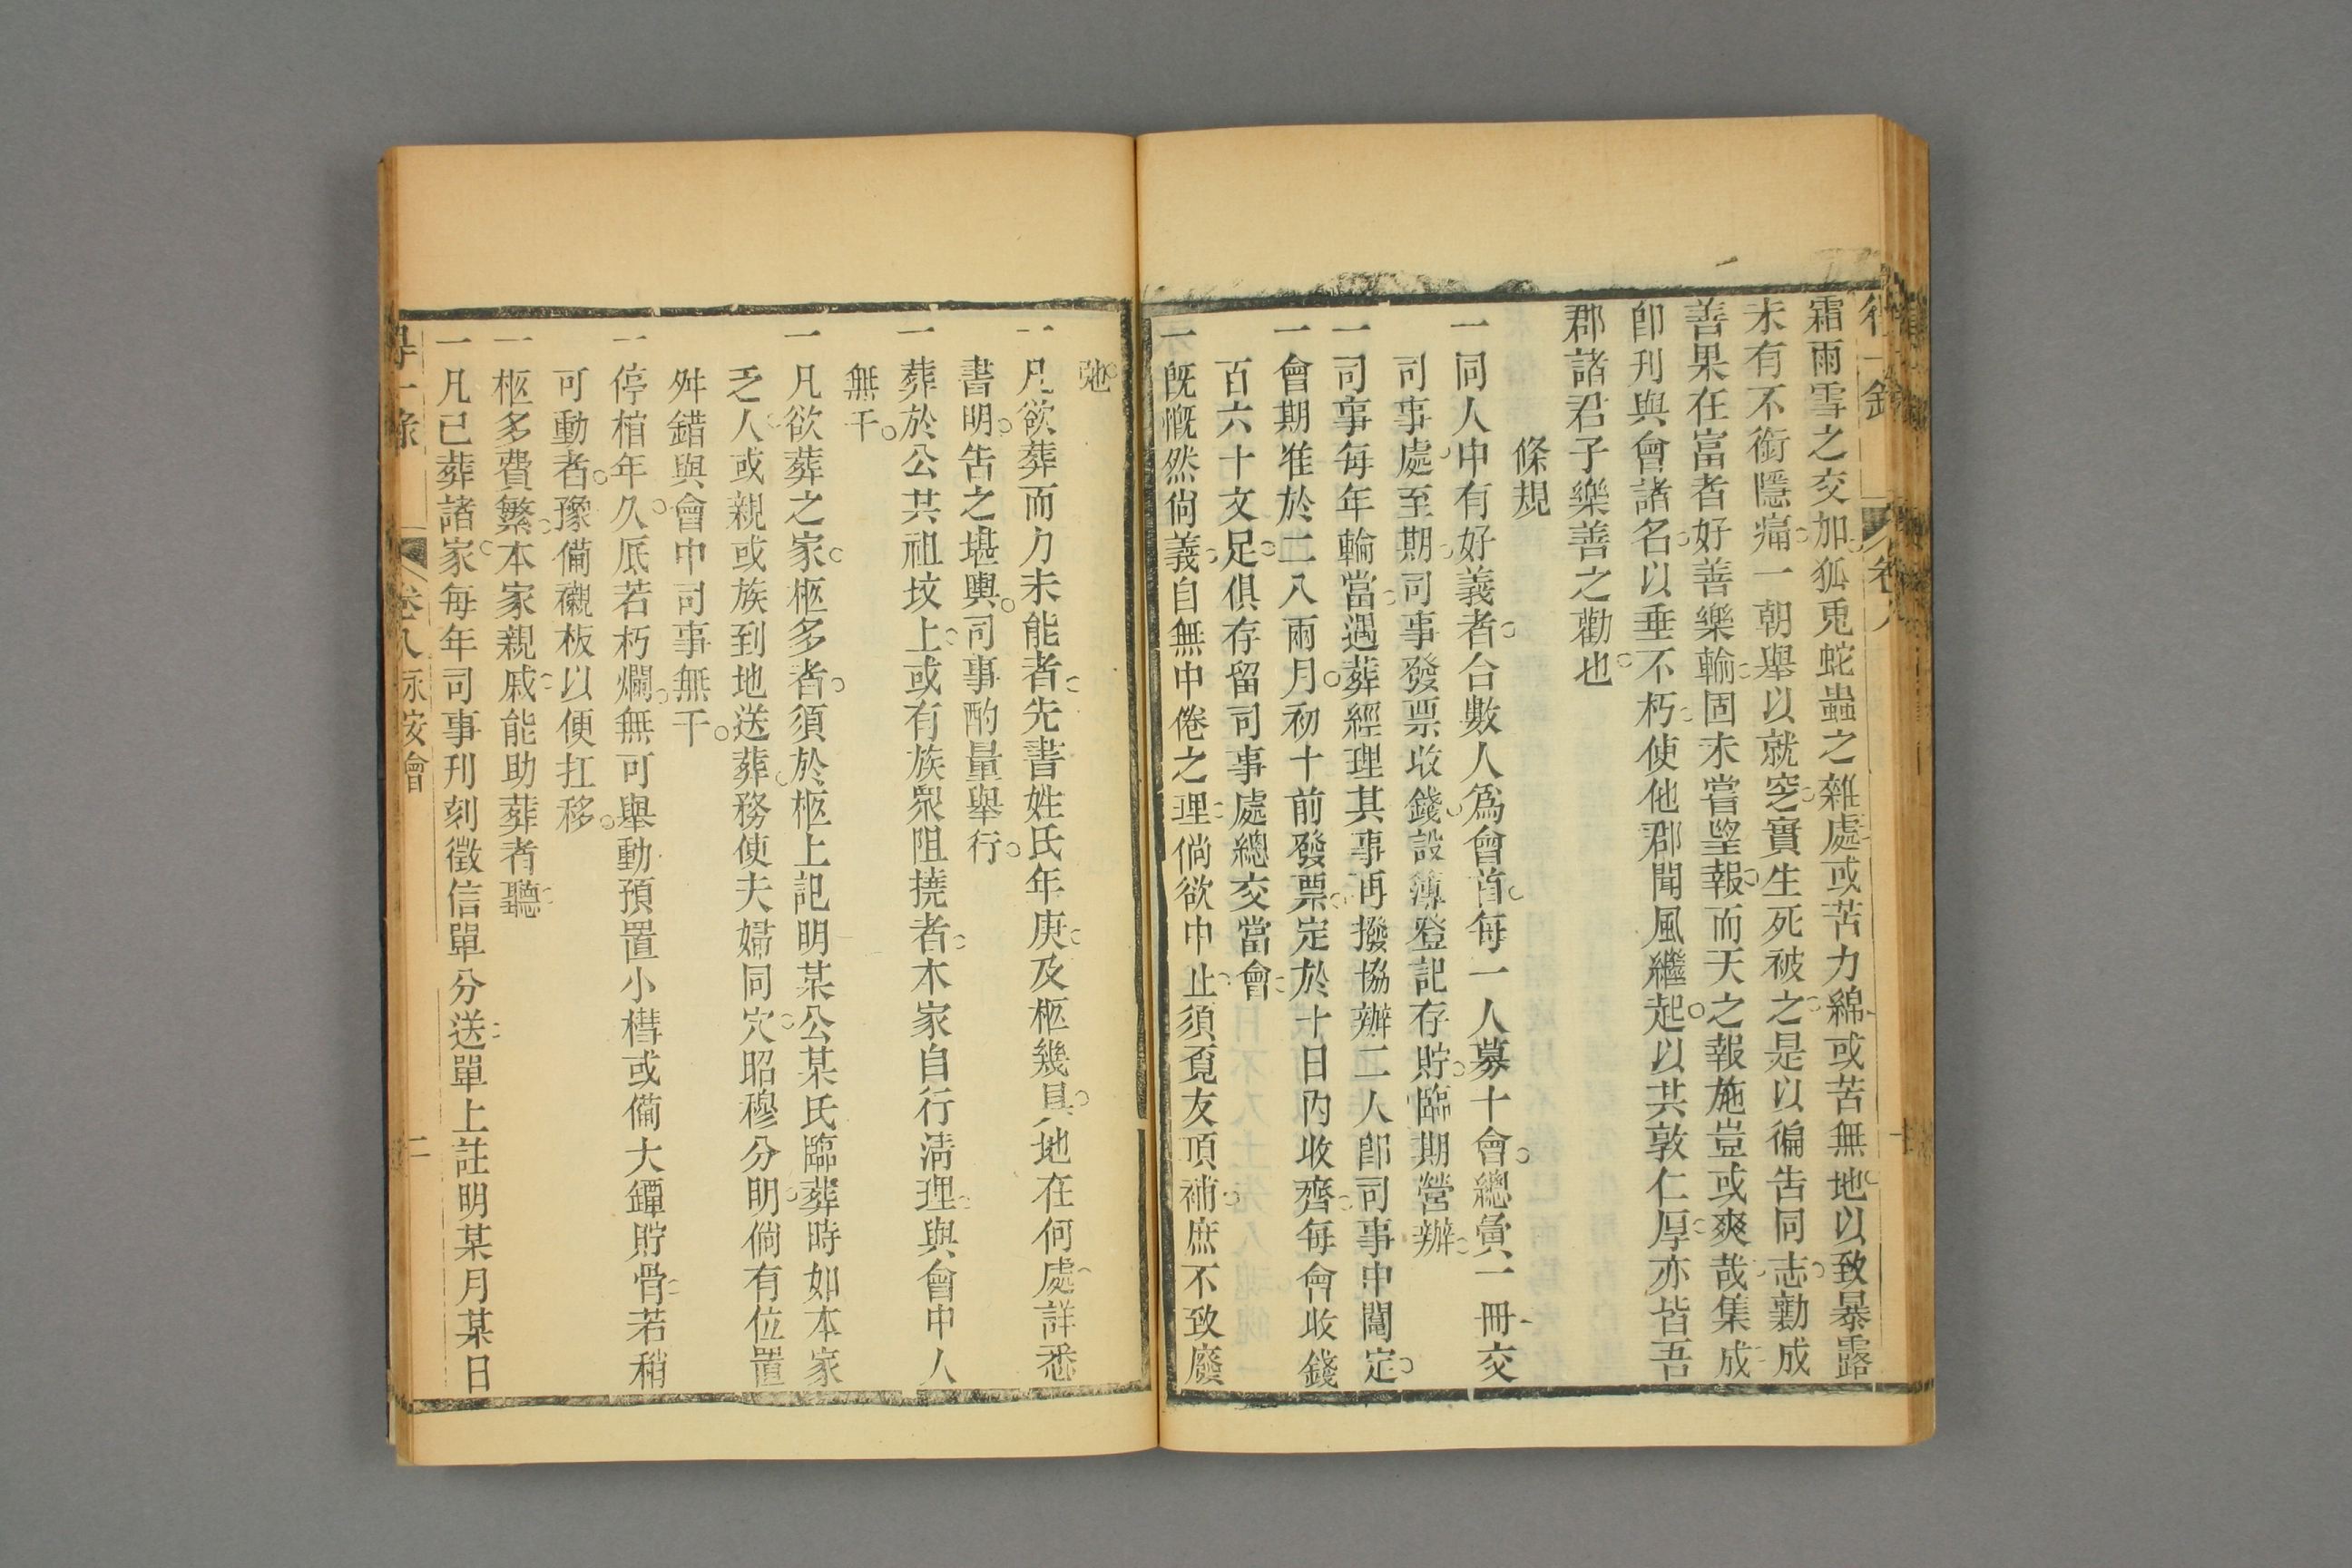 霜雨雪之交加狐兎蛇蟲之雜處或苦力綿或苦無地以致暴露
未有不銜隱痛一朝舉以就窆實生死被之是以徧告同志勷成
善果在富者好善樂輸固未嘗望報而天之報施豈或爽哉集成
卽刊與會諸名以垂不朽使他郡聞風繼起以共敦仁厚亦皆吾
郡諸君子樂善之勸也
條規
一同人中有好義者合數人爲會首每一人募十會總彙一冊交
司事處至期司事發票收錢設簿登記存貯臨期營辦
一司事每年輪當遇葬經理其事再撥協辦二人卽司事中鬮定
一會期准於二八兩月初十前發票定於十日內收齊每會收錢
百六十文足俱存留司事處總交當會
一既慨然尙義自無中倦之理倘欲中止須覓友頂補庶不致廢
弛
一凡欲葬而力未能者先書姓氏年庚及柩幾具地在何處詳悉
書明告之堪輿司事酌量舉行
一葬於公共祖坟上或有族衆阻撓者本家自行淸理與會中人
無干
一凡欲葬之家柩多者須於柩上記明某公某氏臨葬時如本家
乏人或親或族到地送葬務使夫婦同穴昭穆分明倘有位置
舛錯與會中司事無干
一停棺年久底若朽爛無可舉動預置小槥或備大罈貯骨若稍
可動者豫備襯板以便扛移
一柩多費繁本家親戚能助葬者聽
一凡已葬諸家每年司事刊刻徵信單分送單上註明某月某日
得一錄 卷八 永安會 二